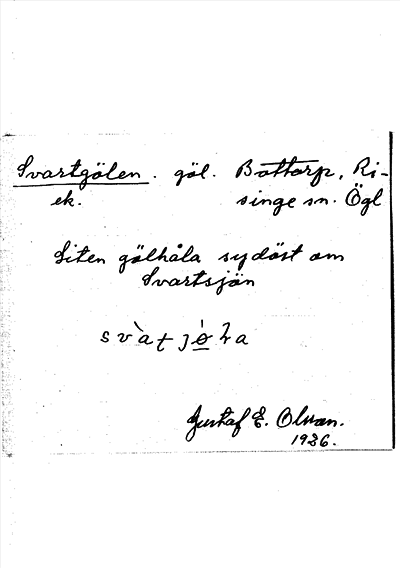 Svartgölen. göl. Bottorp, Ri-
ek. singe sn. Ögl
Liten gölhåla sydöst om
Svartsjön
Gustaf E. Olsson.
1936.